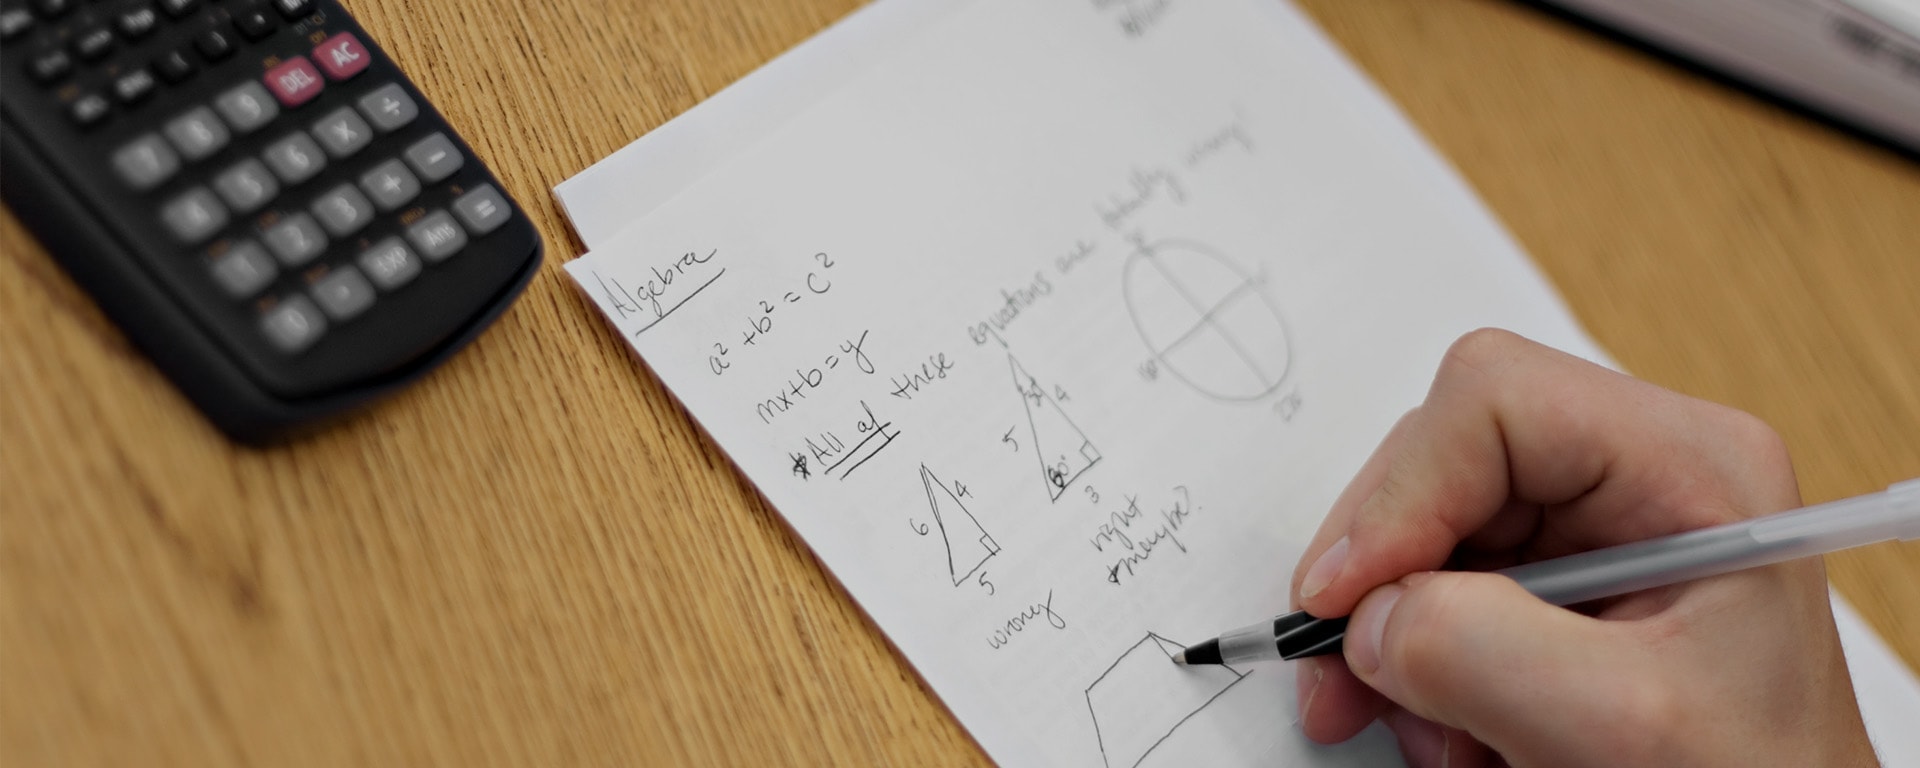 DEL AC
7 8 9
4 5 6 × ÷
1 2 3 + −
0 . EXP Ans =
Algebra
a² + b² = c²
mx+b=y
*All of these equations are totally wrong!
6 4
5
wrong
5 4
60°
3
right
maybe?